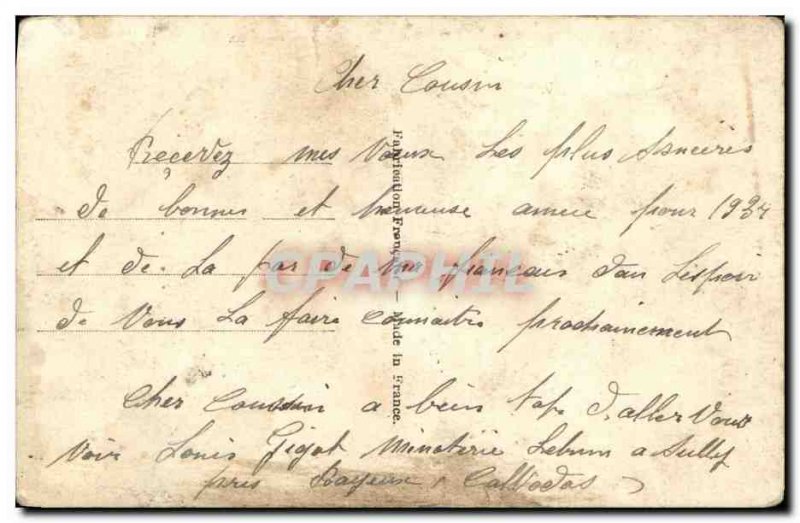 Cher Cousin
Reçevez mes Vœux Les plus sincères
de bonnes et heureuse annee pour 1934
et de La par de ma français dan L'espoir
de Vous La faire connaitre prochainement
Cher Coussin a bein tot d'aller Vous
Voir Louis Gigot Minoterie Lebrun a Sully
pres Bayeux Calvodas
Fabrication Française — Made in France.
CPAPHIL